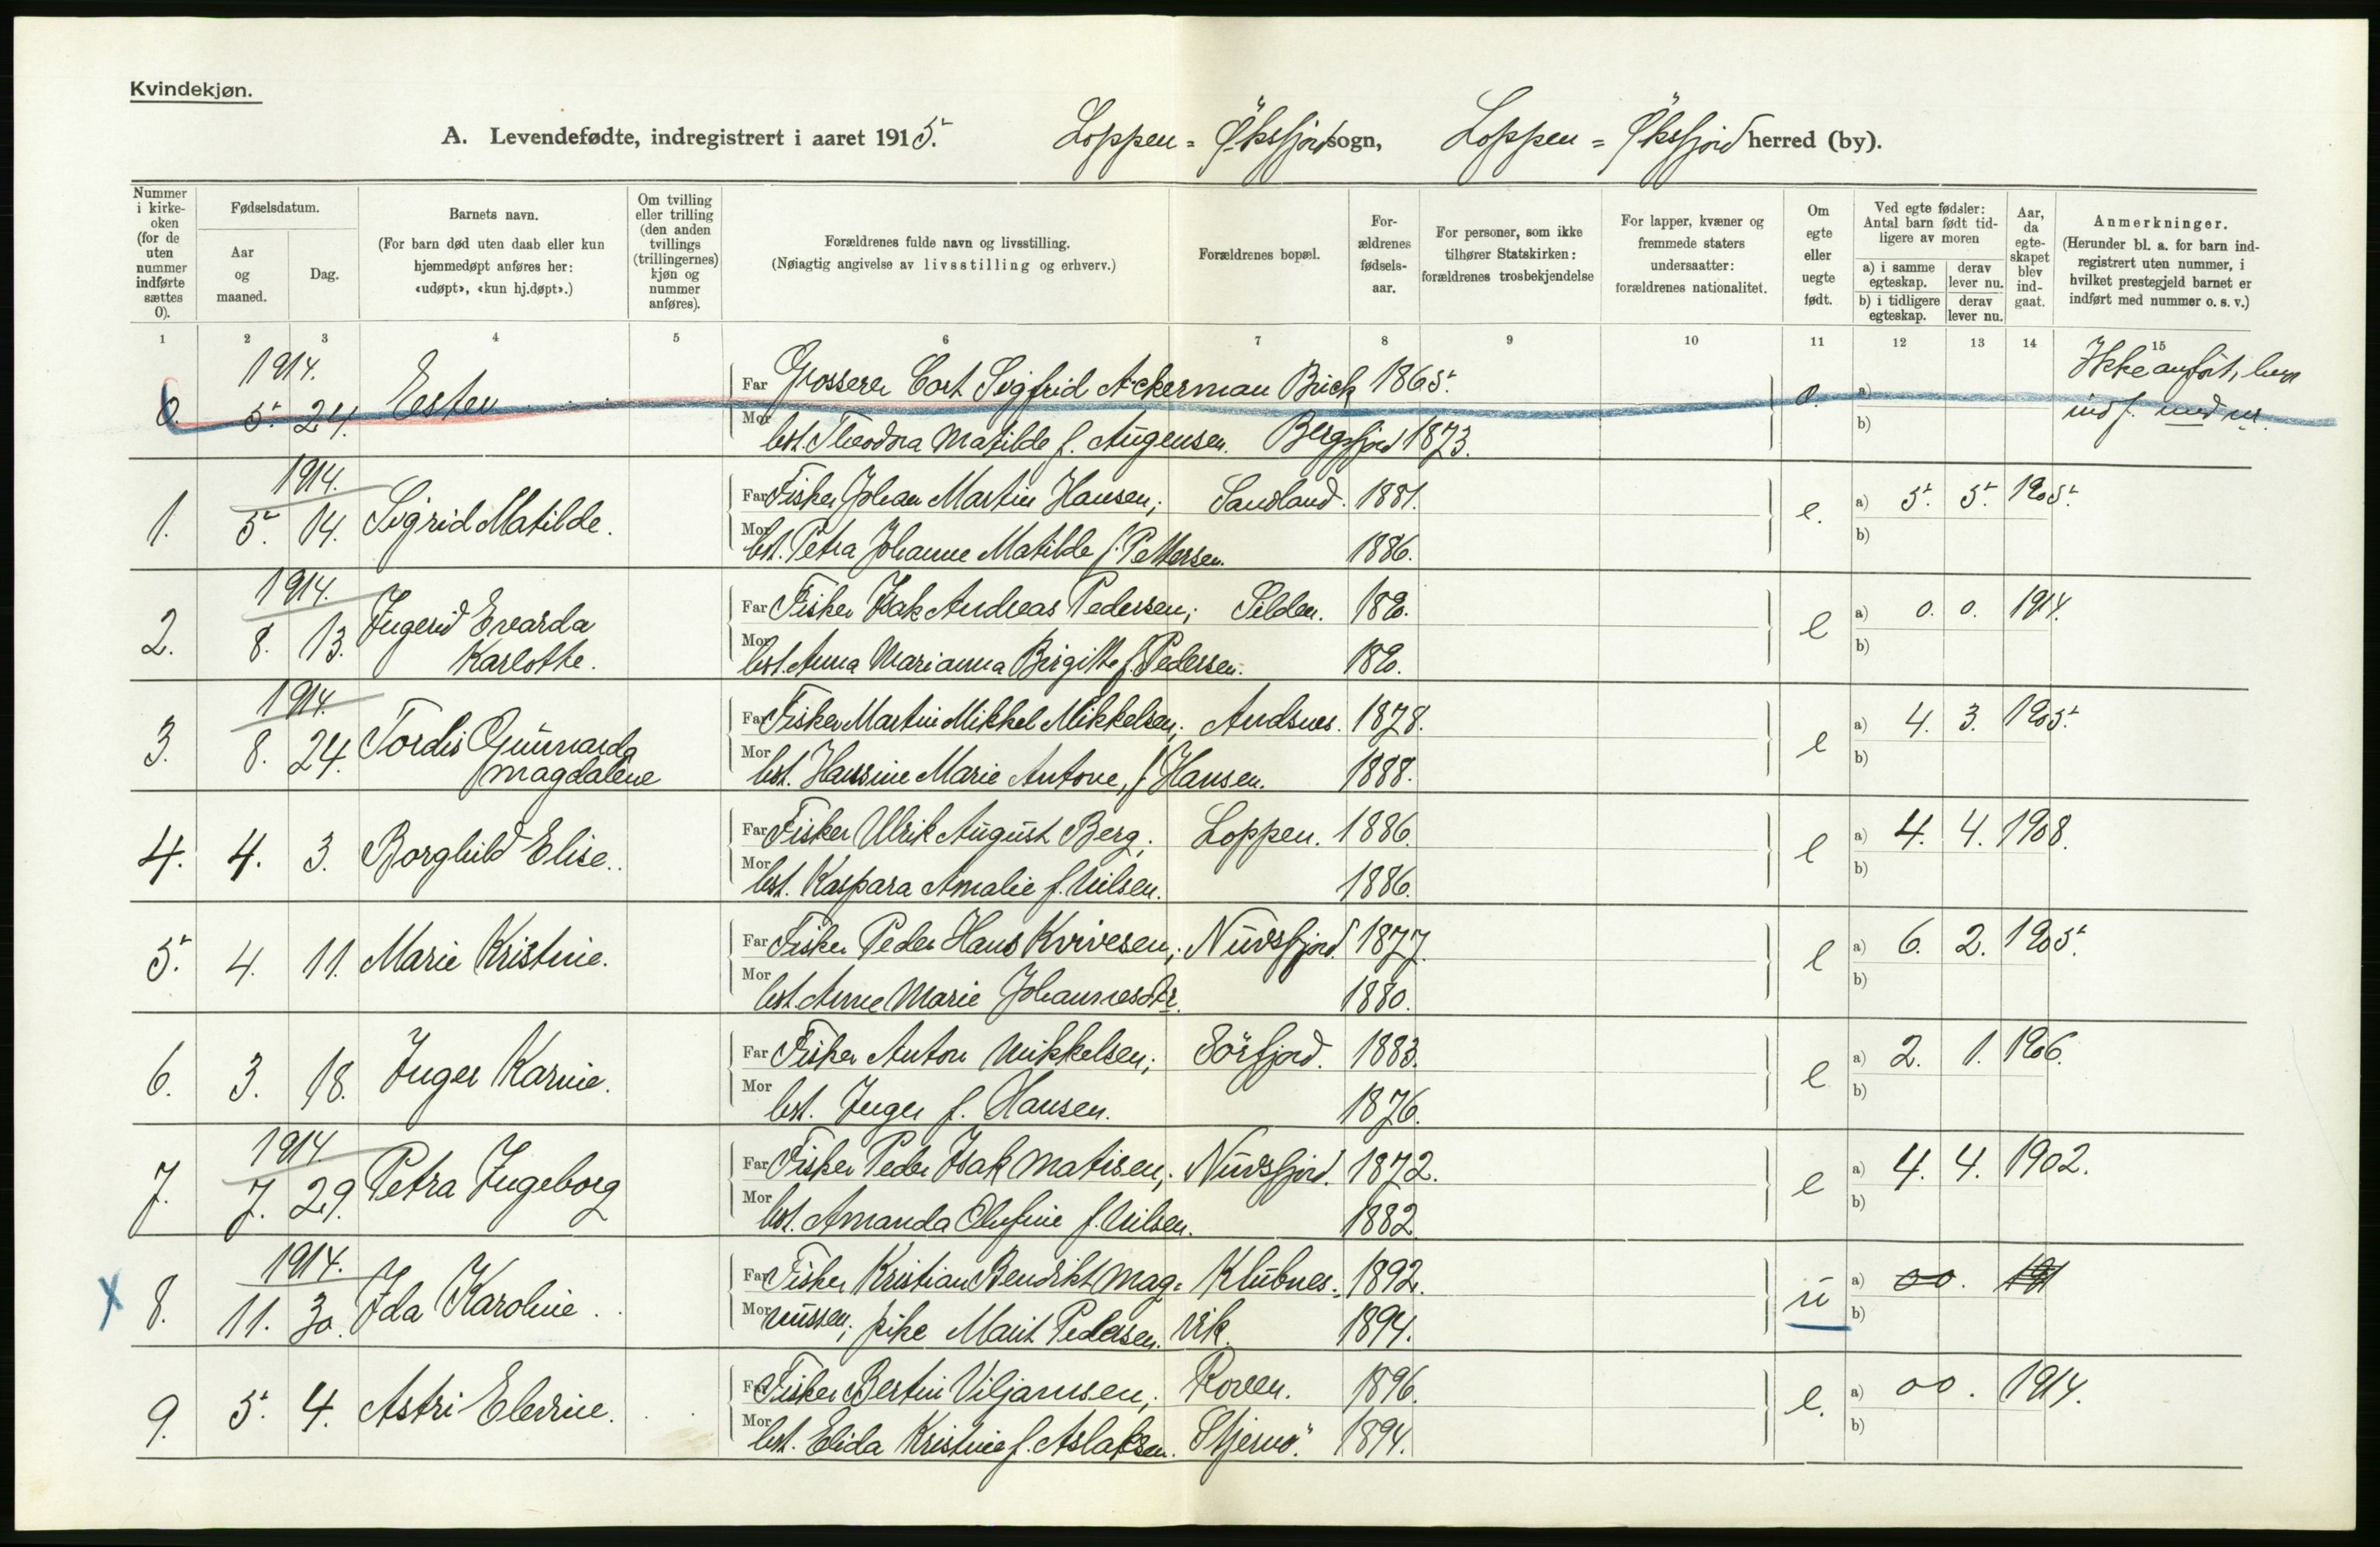 Kvindekjøn.
A. Levendefødte, indregistrert i aaret 1915. Loppen = Øksfjord sogn, Loppen = Øksfjord herred (by).
Nummer i kirke-oken (for de uten nummer indførte sættes 0).
Fødselsdatum.
Aar og maaned.
Dag.
Barnets navn.
(For barn død uten daab eller kun hjemmedøpt anføres her: «udøpt», «kun hj.døpt».)
Om tvilling eller trilling (den anden tvillings (trillingernes) kjøn og nummer anføres).
Forældrenes fulde navn og livsstilling.
(Nøiagtig angivelse av livsstilling og erhverv.)
Forældrenes bopæl.
For-ældrenes fødsels-aar.
For personer, som ikke tilhører Statskirken: forældrenes trosbekjendelse
For lapper, kvæner og fremmede staters undersaatter: forældrenes nationalitet.
Om egte eller uegte født.
Ved egte fødsler: Antal barn født tid-ligere av moren
a) i samme egteskap. derav lever nu.
b) i tidligere egteskap. derav lever nu.
Aar, da egte-skapet blev ind-gaat.
Anmerkninger.
(Herunder bl. a. for barn ind-registrert uten nummer, i hvilket prestegjeld barnet er indført med nummer o. s. v.)
1 2 3 4 5 6 7 8 9 10 11 12 13 14 15
1914. Far Grosserer Cort Sigfrid Ackerman Buck 1865. a) Ikke anført,
0. 5. 24. Ester Mor hst. Theodora Matilde f. Augensen. Bergsfjord 1873. b) ind f. med nr.
1914. Far Fisker Johan Martin Hansen; Sandland. 1881. e. a) 5. 5. 1905.
1. 5. 14. Sigrid Matilde. Mor hst. Petra Johanne Matilde f. Pettersen. 1886. b)
1914. Far Fisker Isak Andreas Pedersen; Silden. 1890. e a) 0. 0. 1914.
2. 8. 13. Ingerid Evarda Karlotte. Mor hst. Anna Marianna Birgitte f. Pedersen. 1890. b)
1914. Far Fisker Martin Mikkel Mikkelsen; Andsnes. 1878. e a) 4. 3. 1905.
3. 8. 24. Tordis Gunnarda Magdalene Mor hst. Hansine Marie Antone, f. Hansen. 1888. b)
Far Fisker Ulrik August Berg; Loppen. 1886. e a) 4. 4. 1908.
4. 4. 3. Borghild Elise. Mor hst. Kaspara Amalie f. Nilsen. 1886. b)
Far Fisker Peder Hans Kvivesen; Nuvsfjord. 1877. e a) 6. 2. 1905.
5. 4. 11. Marie Kristine. Mor hst. Anne Marie Johannesdtr. 1880. b)
Far Fisker Anton Mikkelsen; Sörfjord. 1883. e a) 2. 1. 1906.
6. 3. 18. Inger Karine. Mor hst. Inger f. Hansen. 1876. b)
1914 Far Fisker Peder Isak Matisen; Nuvsfjord. 1872. e a) 4. 4. 1902.
7. 7. 29. Petra Ingeborg Mor hst. Amanda Olufine f. Nilsen. 1882 b)
1914. Far Fisker Kristian Bendikt Mag- Klubnes- 1892. u a) 00. 191
x 8. 11. 30. Ida Karoline. Mor nussen; pike Marit Pedersen. vik. 1894. b)
Far Fisker Bertin Viljamsen; Roven. 1896. e. a) 00. 1914.
9. 5. 4. Astri Eledine. Mor hst. Elida Kristine f. Aslaksen. Stjernö. 1894. b)